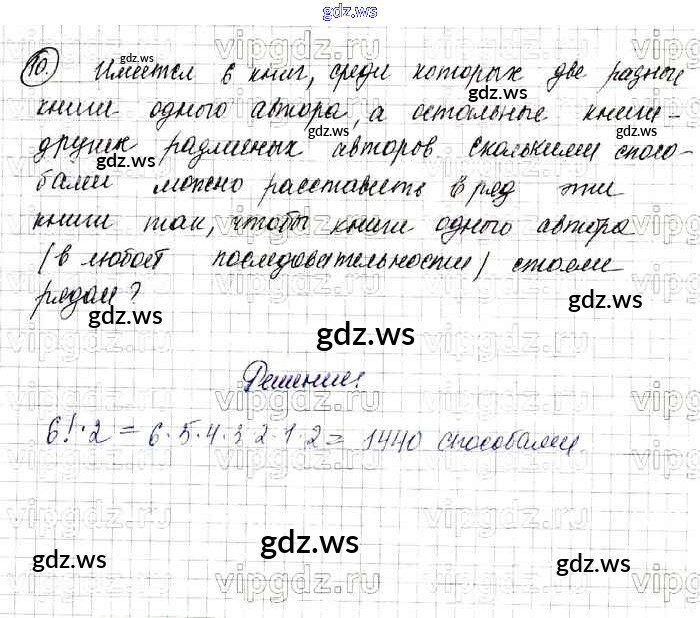 gdz.ws
10. Имеется 6 книг, среди которых две разные
книги одного автора, а остальные книги-
других различных авторов сколькими спосо-
бами можно расставить в ряд эти
книги так, чтобы книги одного автора
(в любой последовательности) стояли
рядом?
Решение:
6!·2 = 6·5·4·3·2·1·2 = 1440 способами.